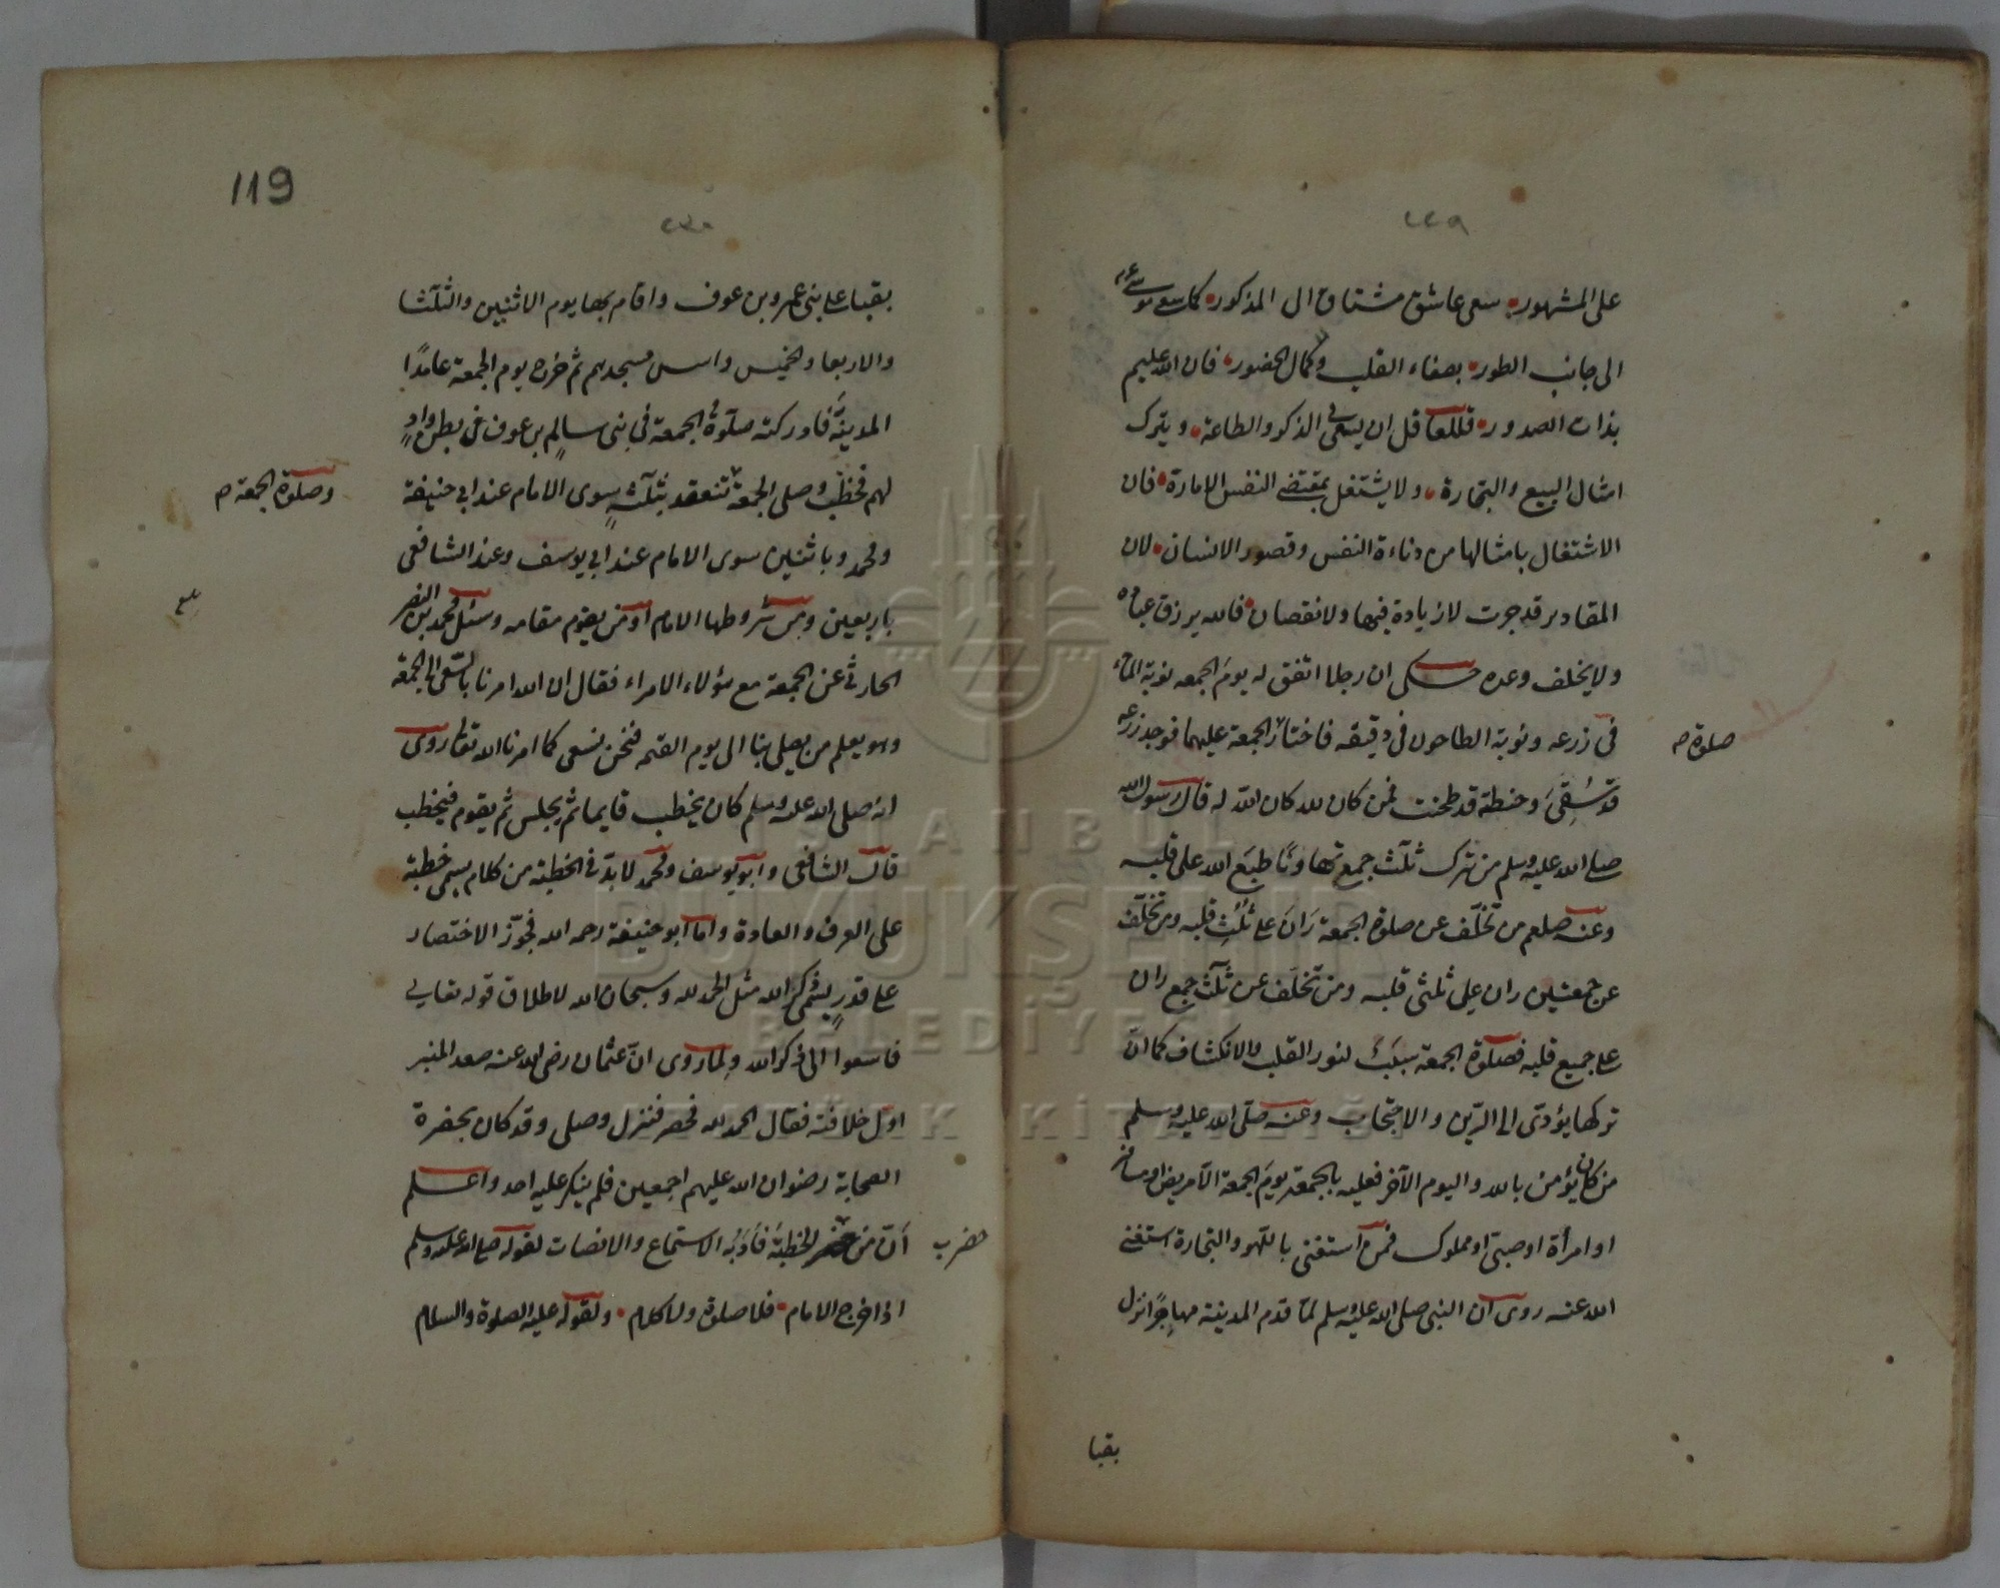 ٢٢٩
على المشهور سعى عاشق مشتاق الى المذكور كما سعى موسى عم
الى جانب الطور بصفاء القلب وكمال الحضور فان الله عليم
بذات الصدور فللعاقل ان يسعى فى الذكر والطاعة ويترك
امثال البيع والتجارة ولا يشتغل بمقتضى النفس الامارة فان
الاشتغال بامثالها من دناءة النفس وقصور الانسان لان
المقادير قد جرت لا زيادة فيها ولا نقصان فالله يرزق عباده
ولا يخلف وعده حكى ان رجلا اتفق له يوم الجمعه نوبة الماء
فى زرعه ونوبة الطاحون فى دقيقه فاختار الجمعة عليهما فوجد زرعه
صلوة صح
قد سُقِىَ وحنطة قد طحنت فمن كان لله كان الله له قال رسول الله
صلى الله عليه وسلم من ترك ثلث جمع تهاونًا طبَع الله على قلبه
وعنه صلعم من تخلّف عن صلوة الجمعة رَانَ على ثُلُثِ قلبه ومن تخلّف
عن جمعتين ران على ثلثى قلبه ومن تخلَف عن ثلث جمع ران
على جميع قلبه فصلوة الجمعة سبَبٌ لنور القلب والانكشاف كما انّ
تركها يؤدّى الى الرّين والاحتجاب وعنه صلّى الله عليه وسلم
من كان يؤمن بالله واليوم الآخر فعليه بالجمعة يومَ الجمعة الا مريض او مسافر
او امرأة او صبىّ او مملوك فمن استغنى باللهو والتجارة استغنى
الله عنه روى ان النبى صلى الله عليه وسلم لمّا قدم المدينة مهاجرًا نزل
بقبا
119
٢٣٠
بقبا على بنى عمرو بن عوف واقام بها يوم الاثنين والثلثا
والاربعا والخميس واسس مسجدهم ثم خرج يوم الجمعة عامدًا
المدينَةَ فادركته صلوةُ الجمعة فى بنى سالِم بن عوف فى بطن وادٍ
لهم فخطب وصلى الجمعة تنعقد بثلثةٍ سوى الامام عند ابى حنيفة
وصلوة الجمعة صح
ومحمد وباثنين سوى الامام عند ابى يوسف وعند الشافعى
باربعين ومن شروطها الامام او من يقوم مقامه وسئل محمد بن النضر
الحارثى عن الجمعة مع هؤلاء الامراء فقال ان الله امرنا بالسّعى الى الجمعة
وهو يعلم من يصلى بنا الى يوم القيمه فنحن نسعى كما امرنا الله تعالى روى
انه صلى الله عليه وسلم كان يخطب قايما ثم يجلس ثم يقوم فيخطب
قال الشافعى وابو يوسف ومحمد لا بدّ فى الخطبة من كلام يسمى خطبة
على العرف والعادة واما ابو حنيفة رحمه الله فجوّز الاختصار
على قدرٍ يسمى ذكر الله مثل الحمد لله وسبحان الله لاطلاق قوله تعالى
فاسعوا الى ذكر الله ولما روى انّ عثمان رضى الله عنه صعد المنبر
اول خلافته فقال الحمد لله فحصر فنزل وصلى وقد كان بحضرة
الصحابة رضوان الله عليهم اجمعين فلم ينكر عليه احد واعلم
انّ من الخطبَة فَادَبُه الاستماع والانصات لقوله صلى الله عليه وسلم
حضر ب
اذا خرج الامام فلا صلوة ولا كلام ولقوله عليه الصلوة والسلام
İSTANBUL
BÜYÜKŞEHİR
BELEDİYESİ
ATATÜRK KİTAPLIĞI